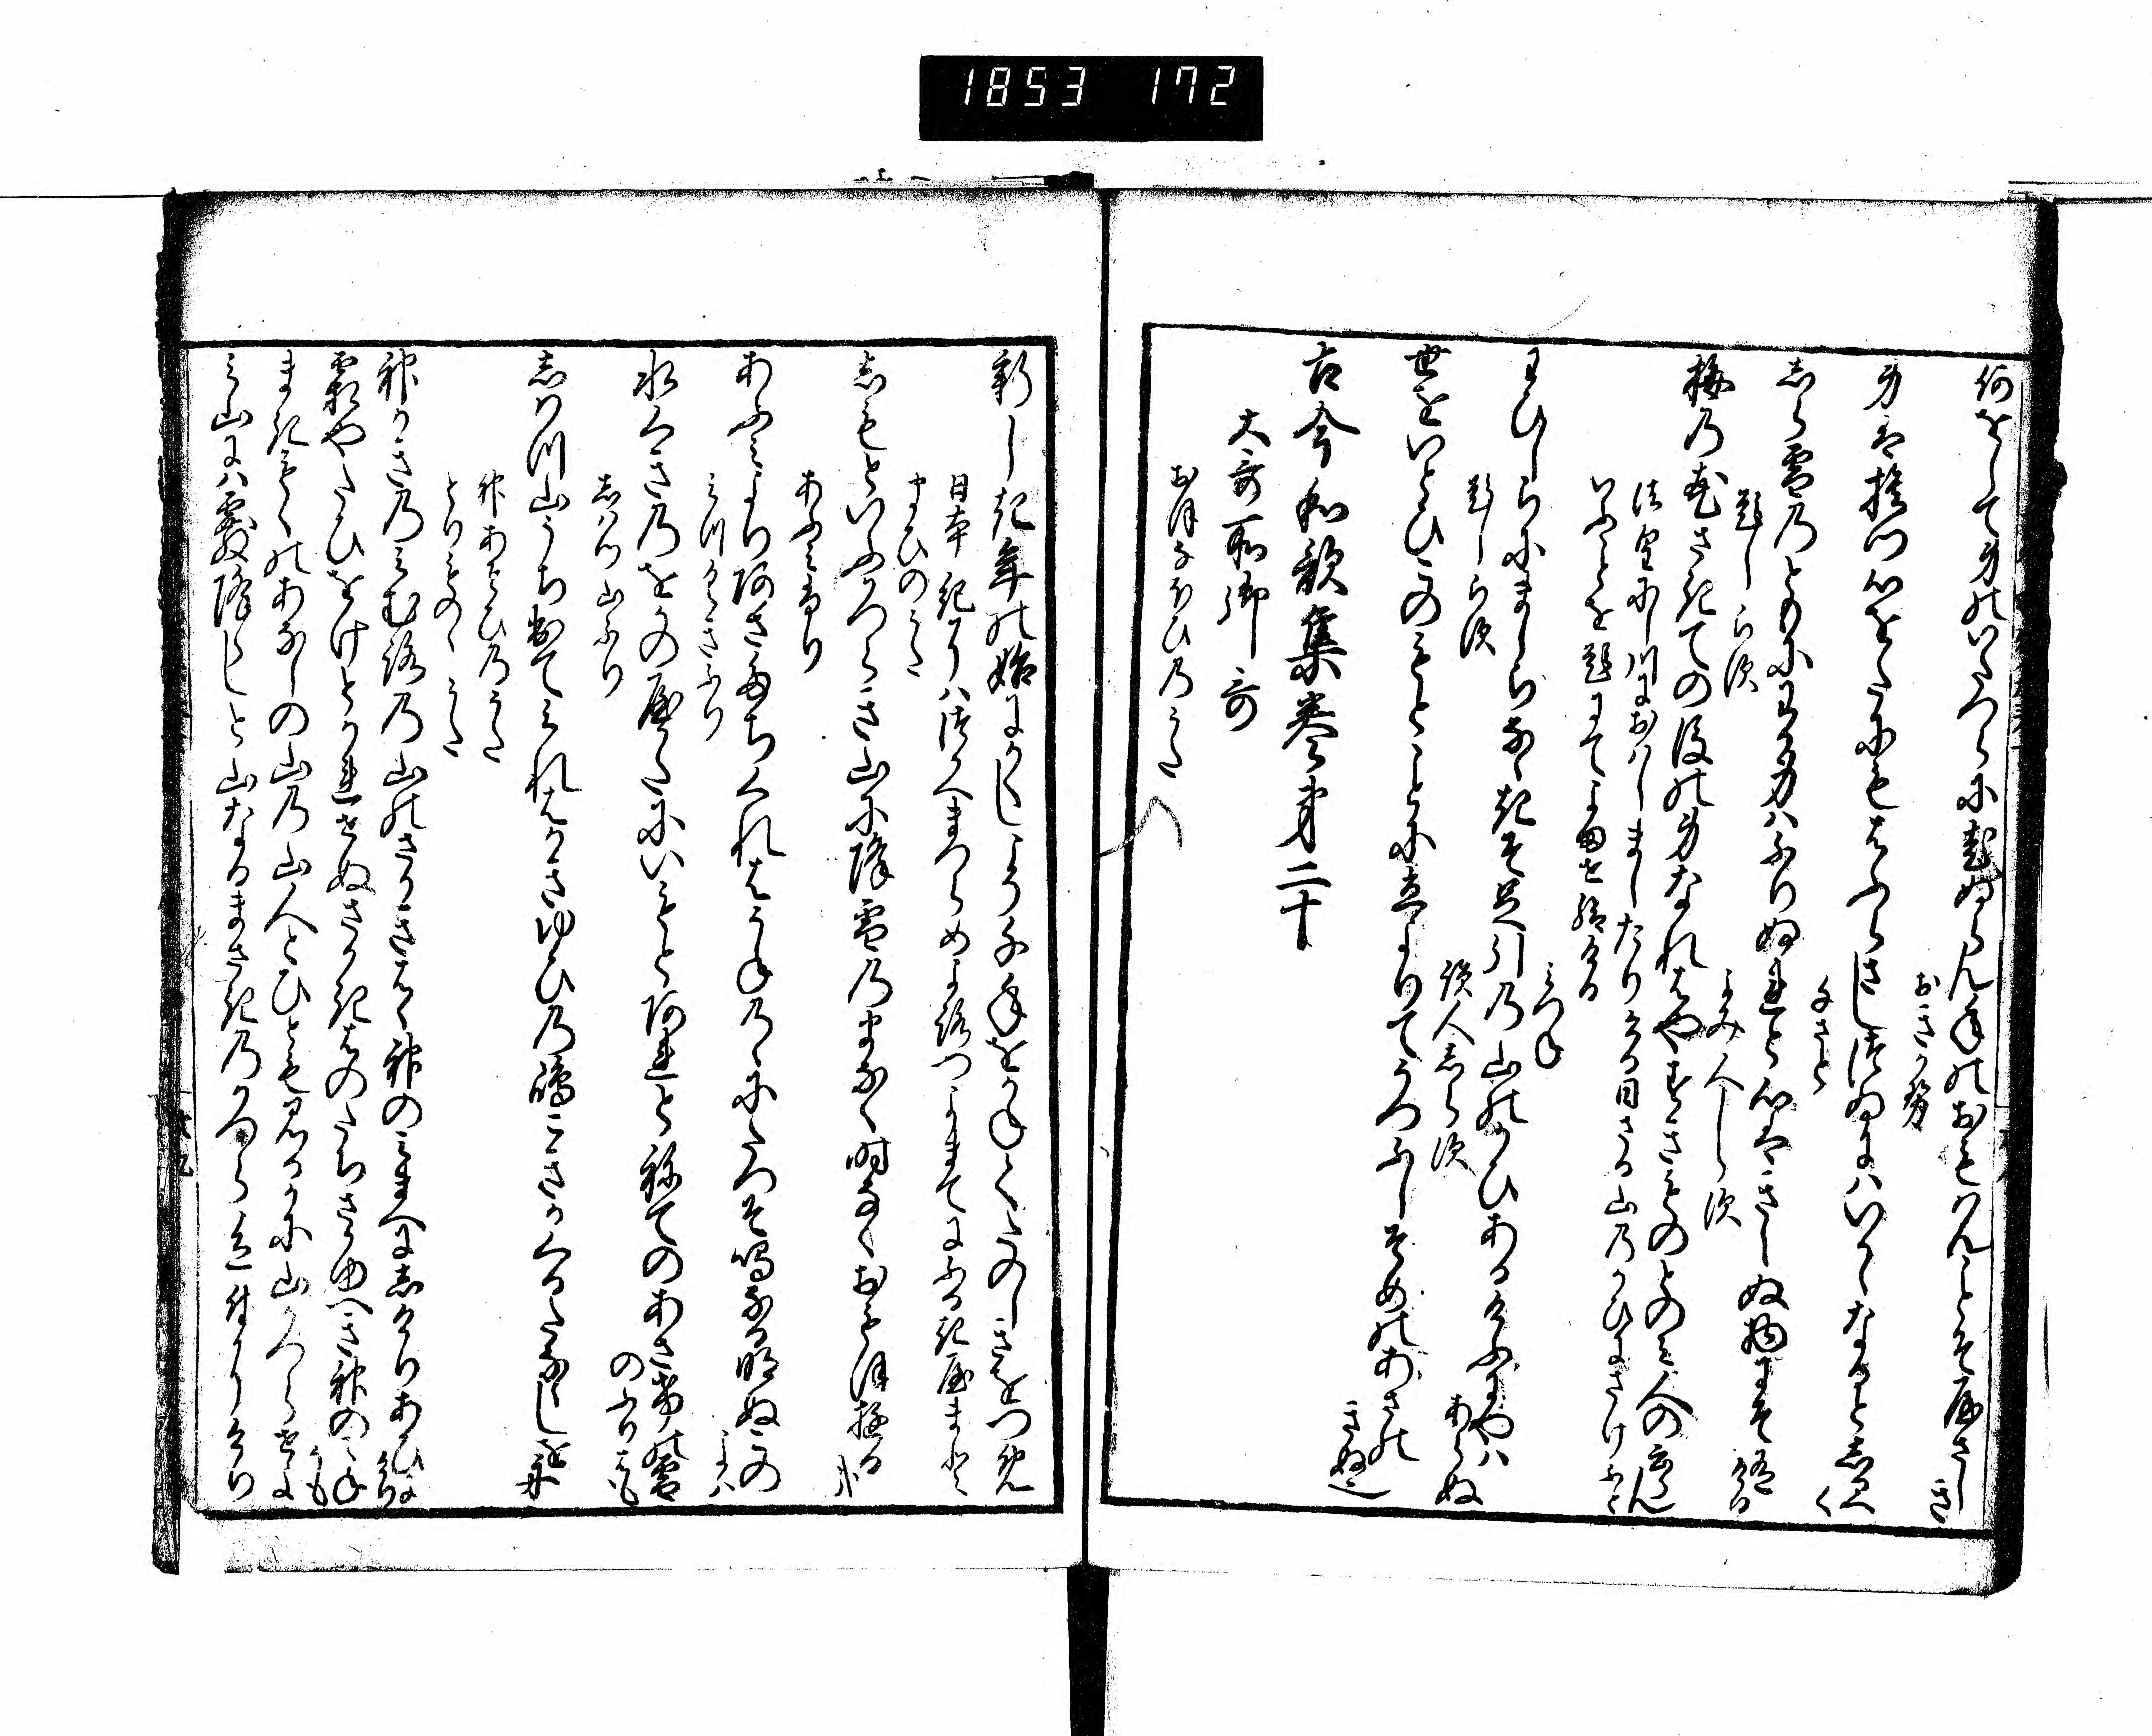 1853 172
何をして身のいたつらに老ぬらん年のおもはんことそやさしき
おきかせ
身は捨つ心をたにもはふらさしつゐにはいかゝなるとしるへく
千さと
しら雪のともにわか身はふりぬれと心はきえぬ物にそ有ける
題しらす
よみ人しらす
梅の花さきての後の身なれはやすき物とのみ人のいふらん
法皇にし川におはしましたりける日さる山のかひにさけふと
いふことを題にてよませ給ける
みつね
わひしらにましらななきそ足引の山のかひあるけふにやはあらぬ
題しらす
読人しらす
世をいとひこのもとことに立よりてうつふしそめのあさのきぬ也
古今和歌集巻第二十
大哥所御哥
おほなほひのうた
新しき年の始にかくしこそ千年をかねてたのしきをつめ
日本紀にはつかへまつらめよろつよまてに
ふるきやまとまひのうた
しもとゆふかつらき山に降雪のまなく時なくおもほゆる哉
あふみふり
あふみより朝たちくれはうねのゝにたつそ鳴なる明ぬこのよは
みつくきふり
水くきのをかのやかたにいもとあれとねてのあさけの霜のふりはも
しはつ山ふり
しはつ山うち出てみれはかさゆひの嶋こきかくるたなゝしを舟
神あそひのうた
とりものゝうた
神かきのみむろの山のさかきはゝ神のみまへにしけりあひにけり
霜やたひをけとかれせぬさかきはのたちさかゆへき神のきねかも
まきもくのあなしの山の山人とひとも見るかに山かつらせよ
み山にはあられ降らしと山なるまさきのかつら色付にけり